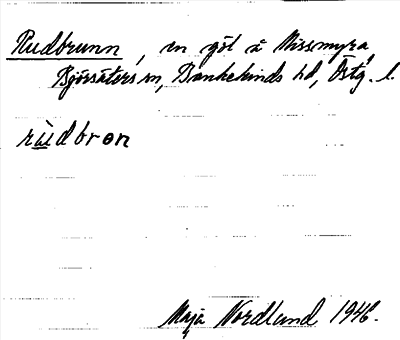 Rudbrunn, en göl å Missmyra,
Björsäters sn, Bankekinds hd, Östg. l.
rùdbrɵn
Maja Nordlund 1946.